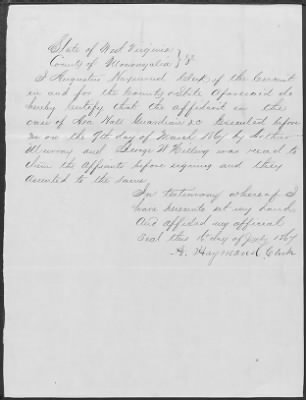 State of West Virginia
County of Monongalia } SS
I Augustus Haymond Clerk of the Circuit
in and for the County & State Aforesaid do
hereby certify that the affidavit in the
case of Asa Hall Guardian &c Executed before
me on the 9th day of March 1867 by
Murray and George W was read to
them the Affiants before signing and they
assented to the same
In testimony whereof I
have hereunto set my hand
And affixed my official
Seal this day of July 1867
A. Haymond Clerk